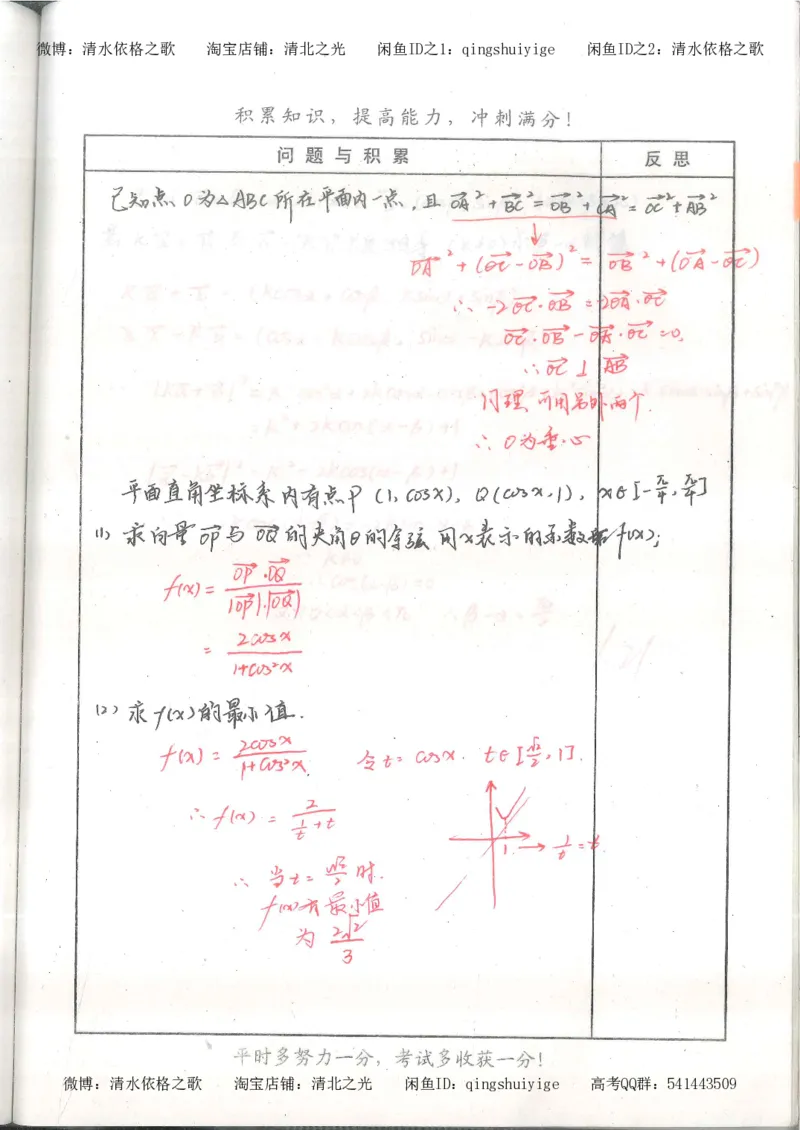 微博：清水依格之歌 淘宝店铺：清北之光 闲鱼ID之1：qingshuiyige 闲鱼ID之2：清水依格之歌
积累知识，提高能力，冲刺满分！
问题与积累 反思
已知点O为△ABC所在平面内一点，且OA²+BC²=OB²+CA²=OC²+AB²
OA²+(OC-OB)²=OB²+(OA-OC)
∴-2OC·OB=-2OA·OC
OC·OB-OA·OC=0,
∴OC⊥AB
同理可用另外两个.
∴O为垂心
平面直角坐标系内有点P(1,cosx), Q(cosx,1), x∈[-π/4,π/4]
(1) 求向量OP与OQ的夹角θ的余弦用x表示的函数f(x);
f(x)=OP·OQ/|OP|·|OQ|
=2cosx/1+cos²x
(2) 求f(x)的最小值.
f(x)=2cosx/1+cos²x. 令t=cosx. t∈[√2/2,1].
∴f(x)=2/(1/t+t)
1 → 1/t=t.
∴当t=√2/2时.
f(x)有最小值
为2√2/3
平时多努力一分，考试多收获一分！
微博：清水依格之歌 淘宝店铺：清北之光 闲鱼ID：qingshuiyige 高考QQ群：541443509